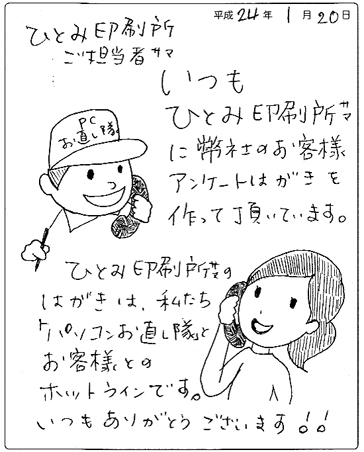 平成24年1月20日
ひとみ印刷所
ご担当者サマ
いつも
ひとみ印刷所サマ
に弊社のお客様
アンケートはがきを
作って頂いています。
PC
お直し隊
ひとみ印刷所サマの
はがきは、私たち
「パソコンお直し隊」と
お客様との
ホットラインです。
いつもありがとうございます!!